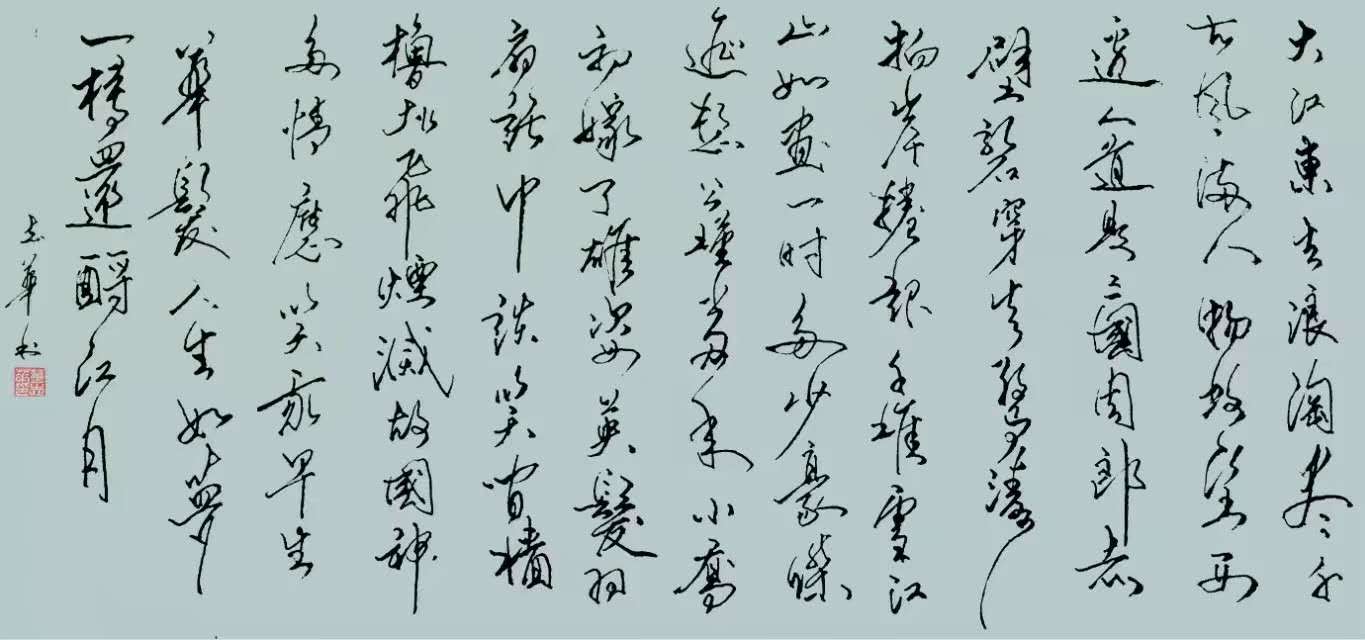 大江東去浪淘尽千
古風流人物故壘西
邊人道是三國周郎赤
壁亂石穿空驚濤
拍岸捲起千堆雪江
山如畫一时多少豪傑
遥想公瑾當年小喬
初嫁了雄姿英發羽
扇綸巾談笑間檣
櫓灰飛煙滅故國神
多情應笑我早生
華髮人生如夢
一樽還酹江月
志華书